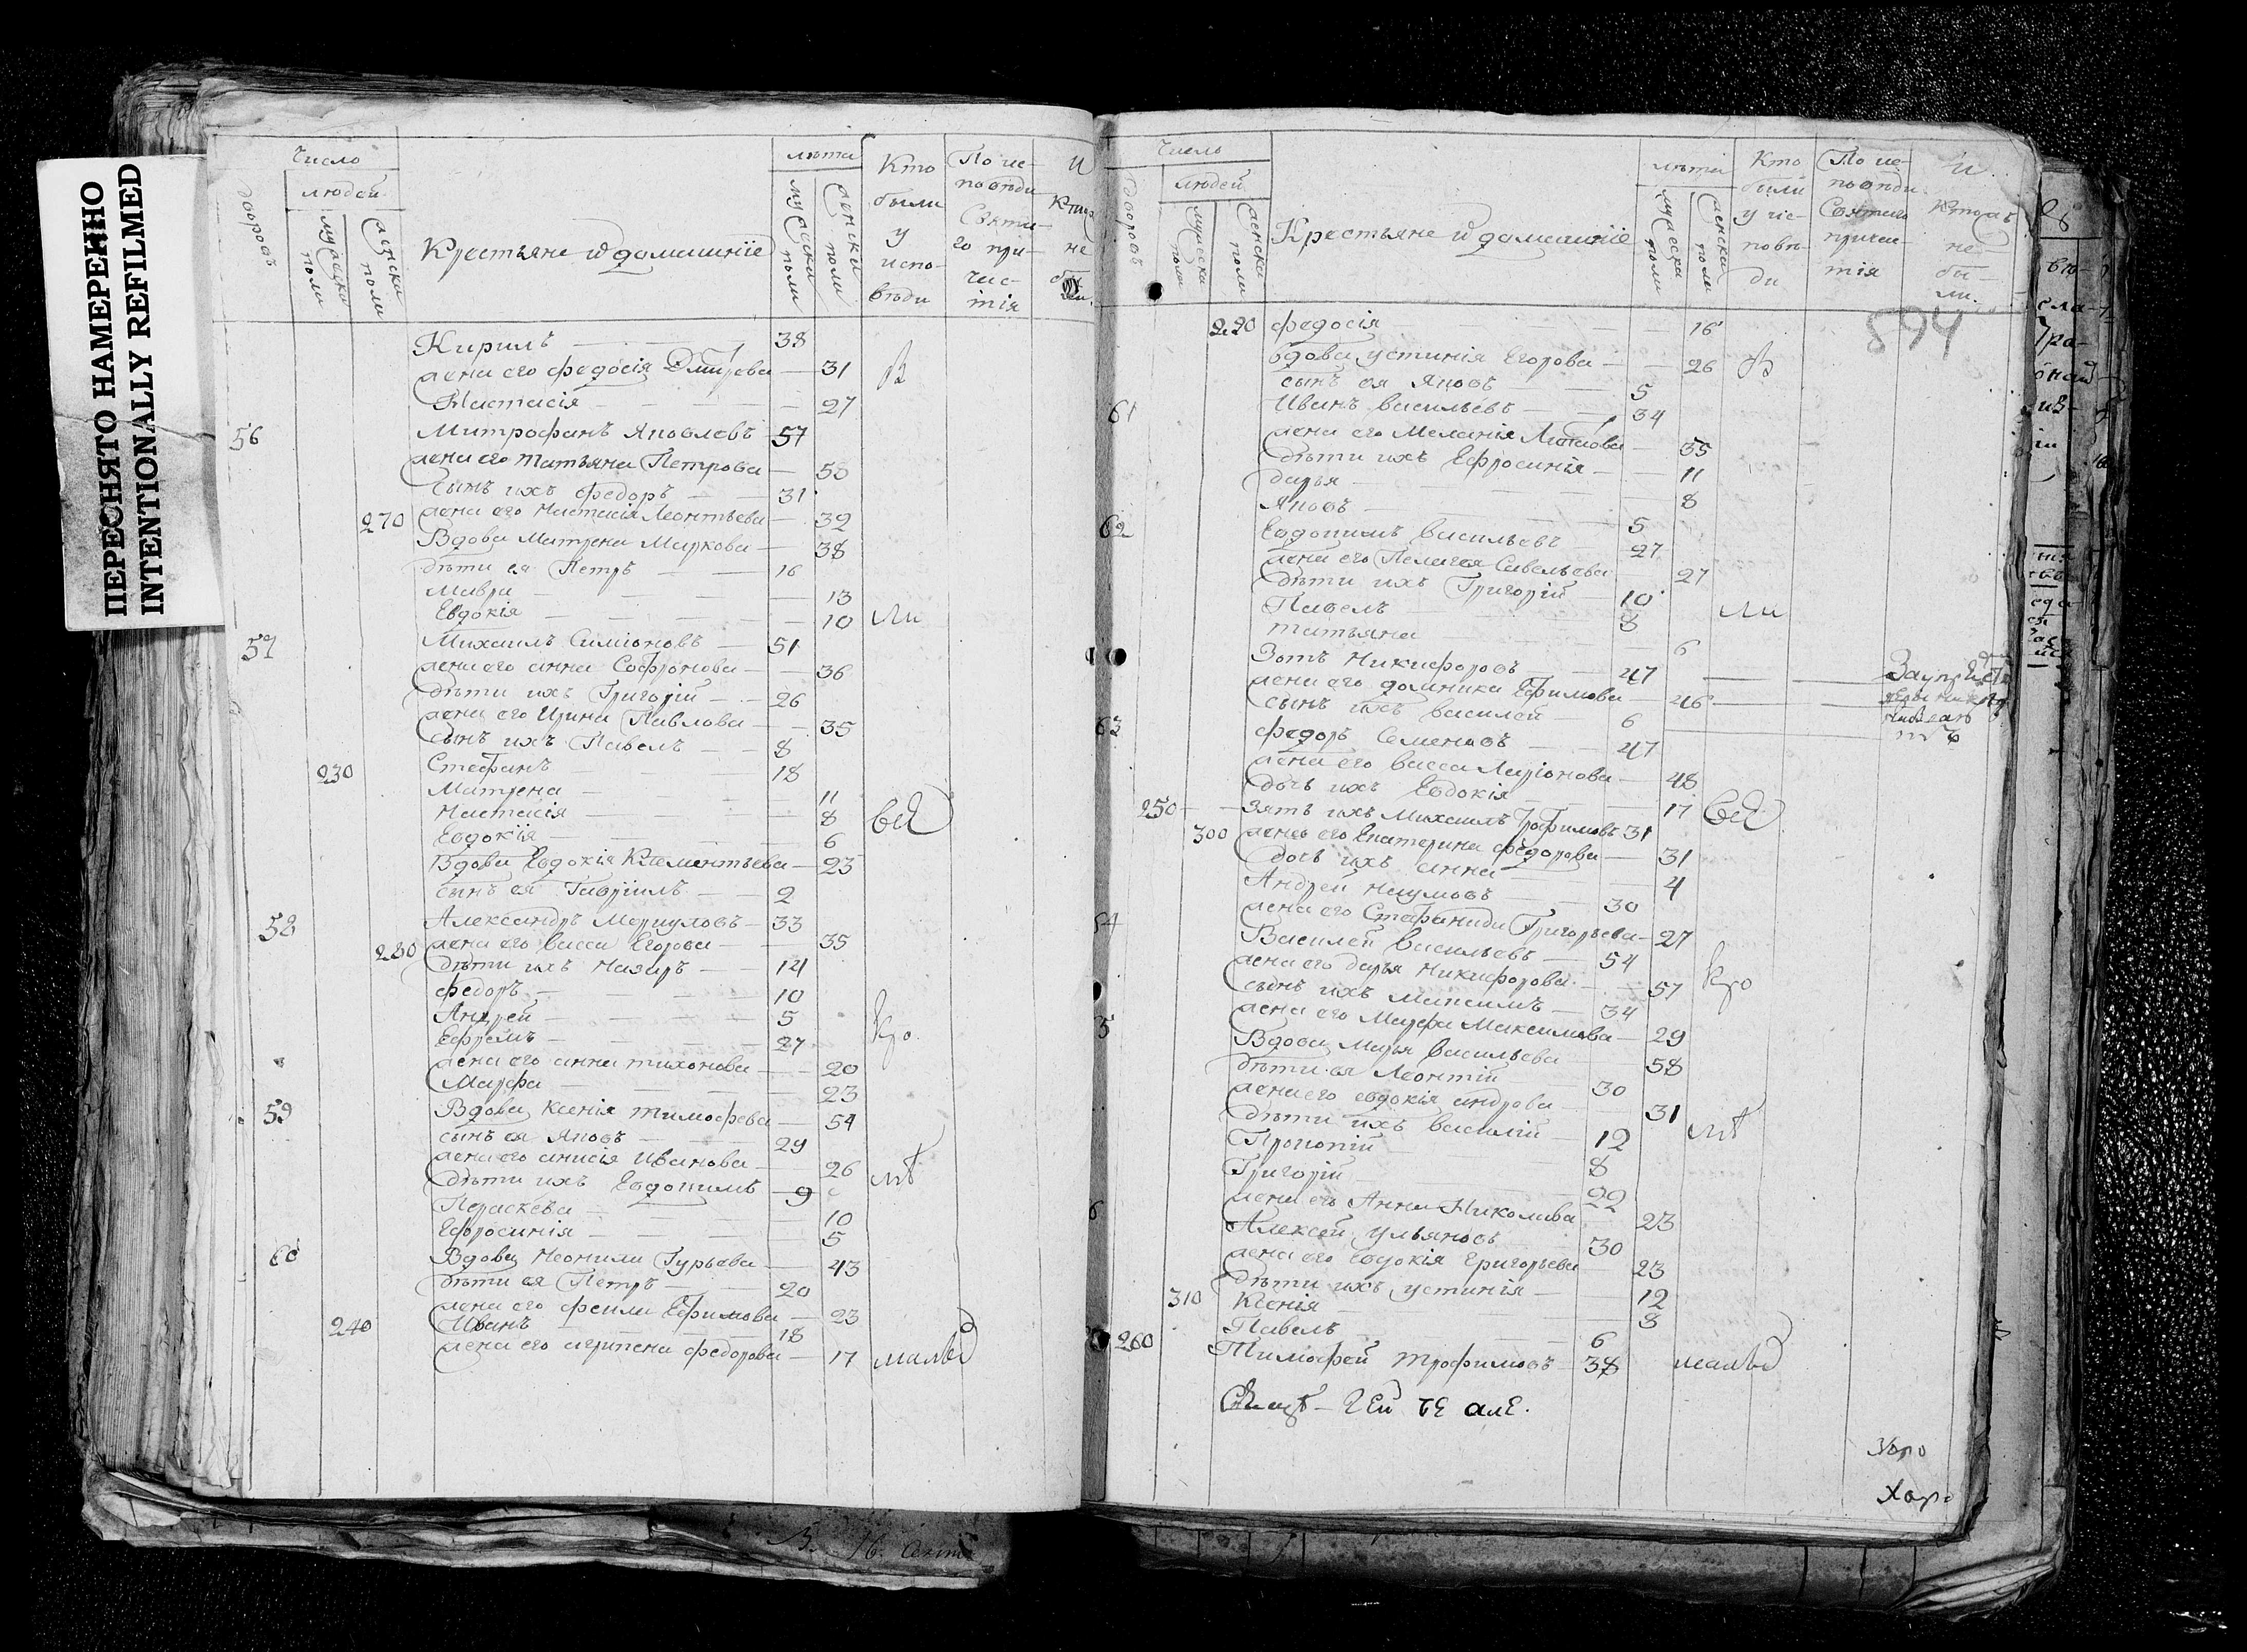 ПЕРЕСНЯТО НАМЕРЕННО
INTENTIONALLY REFILMED
Число
людей
дворовъ
мужеска полу
женска полу
Крестьяне и домашніе
лѣта
мужеска полу
женска полу
Кто были у исповѣди
По исповѣди Святаго причастія
И
не
Кирилъ 38
жена его Федосія Дмитрева 31 В
Настасія 27
56 Митрофанъ Яковлевъ 57
жена его Татьяна Петрова 55
Сынъ ихъ Федоръ 31
270 жена его Настасія Леонтьева 32
Вдова Матрена Маркова 38
дѣти ея Петръ 16
Мавра 13
Евдокія 10 ли
57 Михаилъ Симіоновъ 51
жена его Анна Софронова 36
дѣти ихъ Григорій 26
жена его Ирина Павлова 35
Сынъ ихъ Павелъ 8
230 Стефанъ 18
Матрена 11
Настасія 8 всѣ
Евдокія 6
Вдова Евдокія Клементьева 23
сынъ ея Гавріилъ 2
58 Александръ Меркуловъ 33
280 жена его Васса Егорова 35
дѣти ихъ Назаръ 14
Федоръ 10
Андрей 5
Ефремъ 27 кро
жена его Анна Тихонова 20
Марфа 23
59 Вдова Ксенія Тимофеева 54
сынъ ея Яковъ 29
жена его Анисія Иванова 26
дѣти ихъ Евдокимъ 9 мѣ
Пераскева 10
Ефросинія 5
60 Вдова Неонила Гурьева 43
дѣти ея Петръ 20
жена его Фекла Ефимова 23
240 Иванъ 18
жена его Агрипена Федорова 17 малыя
Число
людей
дворовъ
мужеска полу
женска полу
Крестьяне и домашніе
лѣта
мужеска полу
женска полу
Кто были у исповѣди
По исповѣди Святаго причастія
И
не были.
594
290 Федосія 16
вдова Устинія Егорова 26 В
сынъ ея Яковъ 5
61 Иванъ Васильевъ 34
жена его Меланія 35
дѣти ихъ Ефросинія 11
Дарья 8
Яковъ 5
62 Евдокимъ Васильевъ 27
жена его Пелагея Савельева 27
дѣти ихъ Григорій 10
Павелъ 8 ли
Татьяна 6
Зотъ Никифоровъ 47
жена его Домника Ефимова 46
сынъ ихъ Василей 6
63 Федоръ Семеновъ 47
жена его Васса Ларіонова 48
дочь ихъ Евдокія 17
250 зять ихъ Михаилъ Трофимовъ 31 всѣ
300 жена его Екатерина Федорова 31
дочь ихъ Анна 4
Андрей Наумовъ 30
жена его Стефанида Григорьева 27
Василей Васильевъ 54
жена его Дарья Никифорова 57 кро
сынъ ихъ Максимъ 34
жена его Марфа Максимова 29
Вдова Марья Васильева 58
дѣти ея Леонтій 30
жена его Евдокія Андрева 31
дѣти ихъ Василій 12 мѣ
Прокопій 8
Григорій 22
жена его Анна Николаева 23
Алексей Ульяновъ 30
жена его Евдокія Григорьева 23
дѣти ихъ Устинія 12
310 Ксенія 8
Павелъ 6
260 Тимофей Трофимовъ 38 малыя